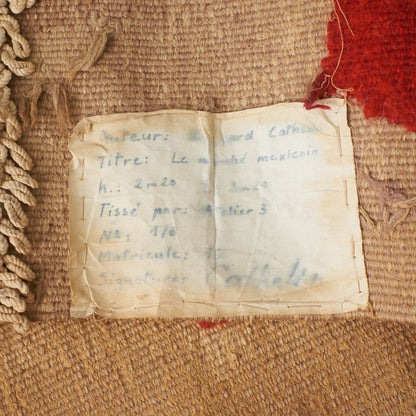 Auteur: Bernard Cathelin
Titre: Le marché mexicain
h.: 2m20
Tissé par: Atelier 3
Nº: 1/6
Matricule:
Signature: Cathelin